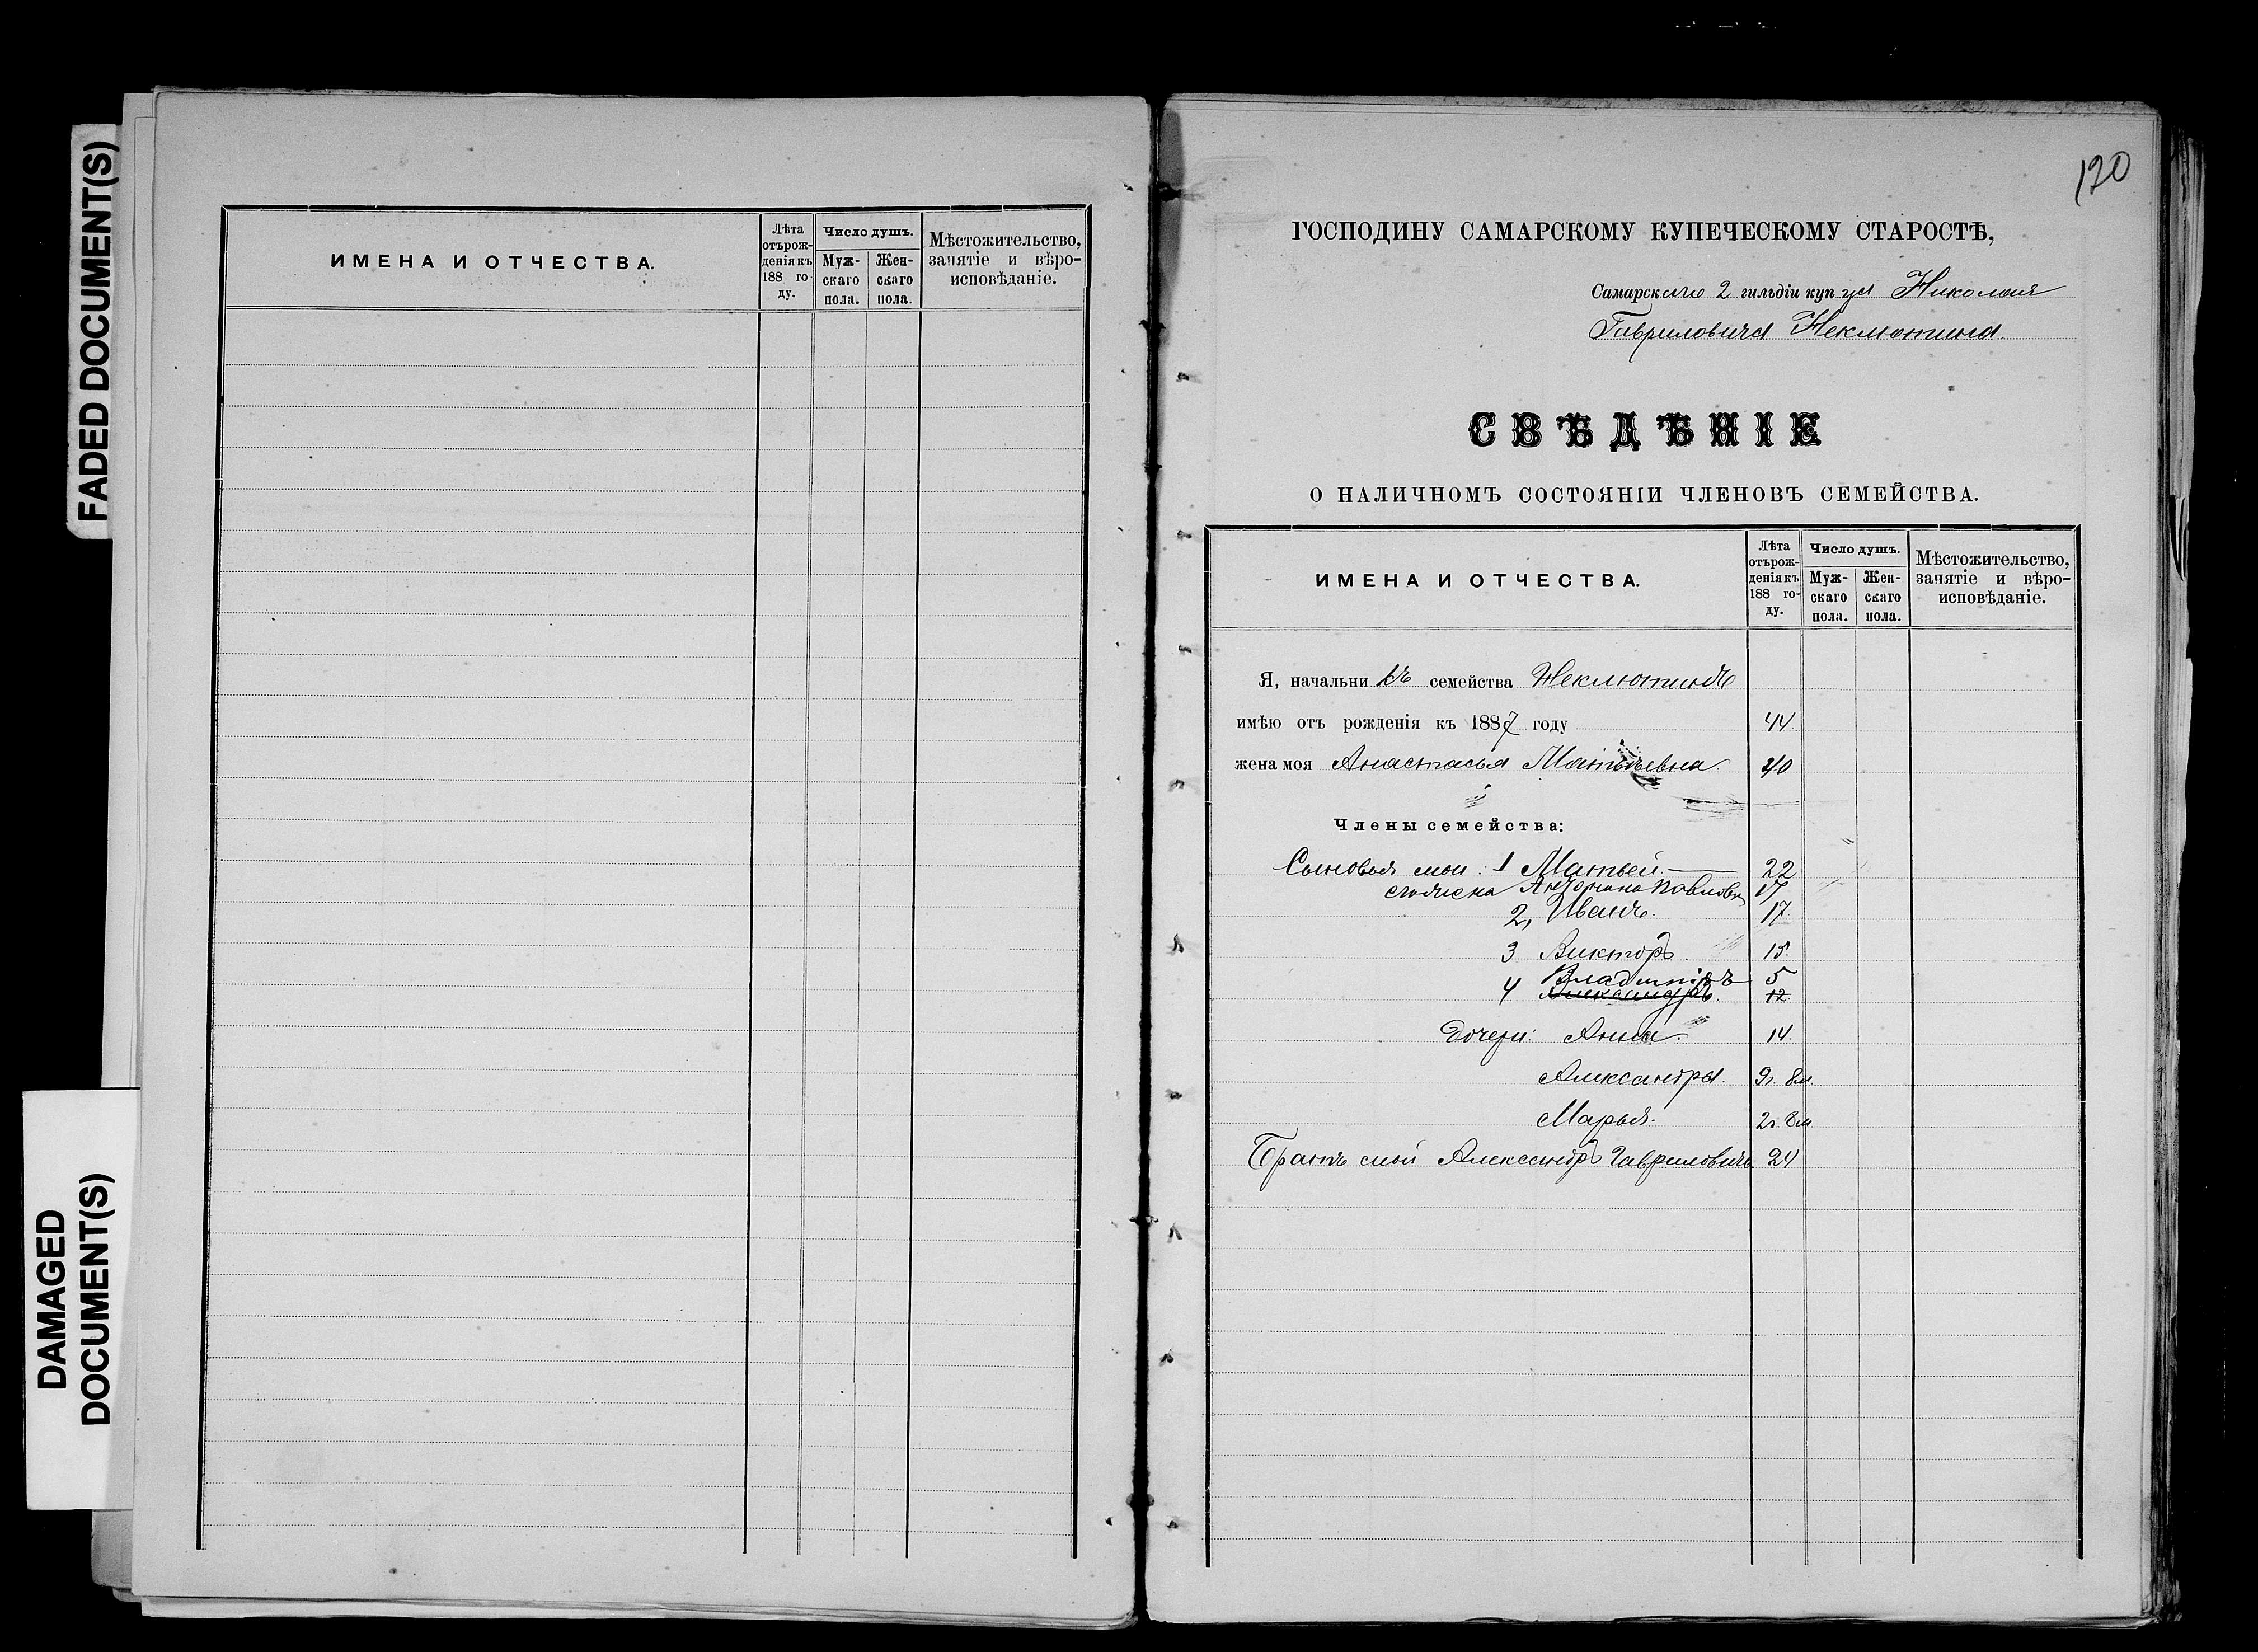 FADED DOCUMENT(S)
DAMAGED
DOCUMENT(S)
ИМЕНА И ОТЧЕСТВА.
Лѣта
отърож-
денія къ
188 го-
ду.
Число душъ.
Муж-
скаго
пола.
Жен-
скаго
пола.
Мѣстожительство,
занятіе и вѣро-
исповѣданіе.
120
ГОСПОДИНУ САМАРСКОМУ КУПЕЧЕСКОМУ СТАРОСТѢ,
Самарскаго 2 гильдіи купца Николая
Гавриловича Неклютина.
СВѢДѢНІЕ
О НАЛИЧНОМЪ СОСТОЯНІИ ЧЛЕНОВЪ СЕМЕЙСТВА.
ИМЕНА И ОТЧЕСТВА.
Лѣта
отърож-
денія къ
188 го-
ду.
Число душъ.
Муж-
скаго
пола.
Жен-
скаго
пола.
Мѣстожительство,
занятіе и вѣро-
исповѣданіе.
Я, начальникъ семейства Неклютинъ
имѣю отъ рожденія къ 1887 году 44
жена моя Анастасья Матвѣевна 40
Члены семейства:
Сыновья мои: 1 Матвей 22
его жена Антонина Павловна 17
2, Иванъ. 17
3 Викторъ. 15
Владиміръ 5
4 Александръ. 12
Дочери: Анна. 14
Александра. 9г. 8м
Марья. 2г. 8м
Братъ мой Александръ Гавриловичъ 24